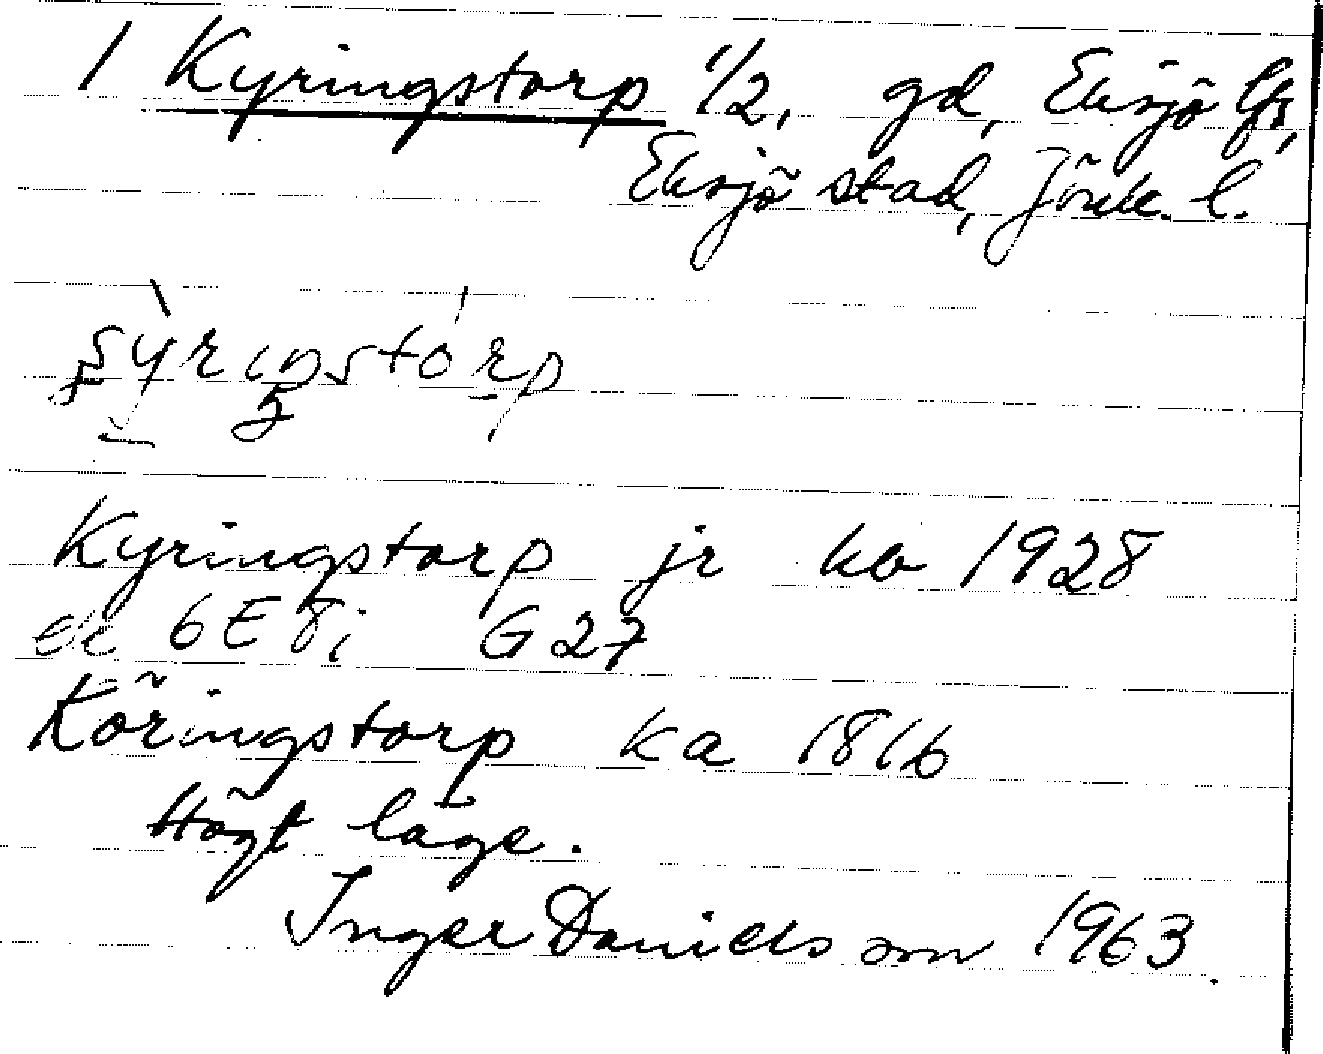 1 Kyringstorp 1/2, gd, Eksjö lfs,
Eksjö stad, Jönk. l.
Kyringstorp jr ka 1928
ek 6E8i G27
Köringstorp ka 1816
Högt läge.
Inger Danielsson 1963.